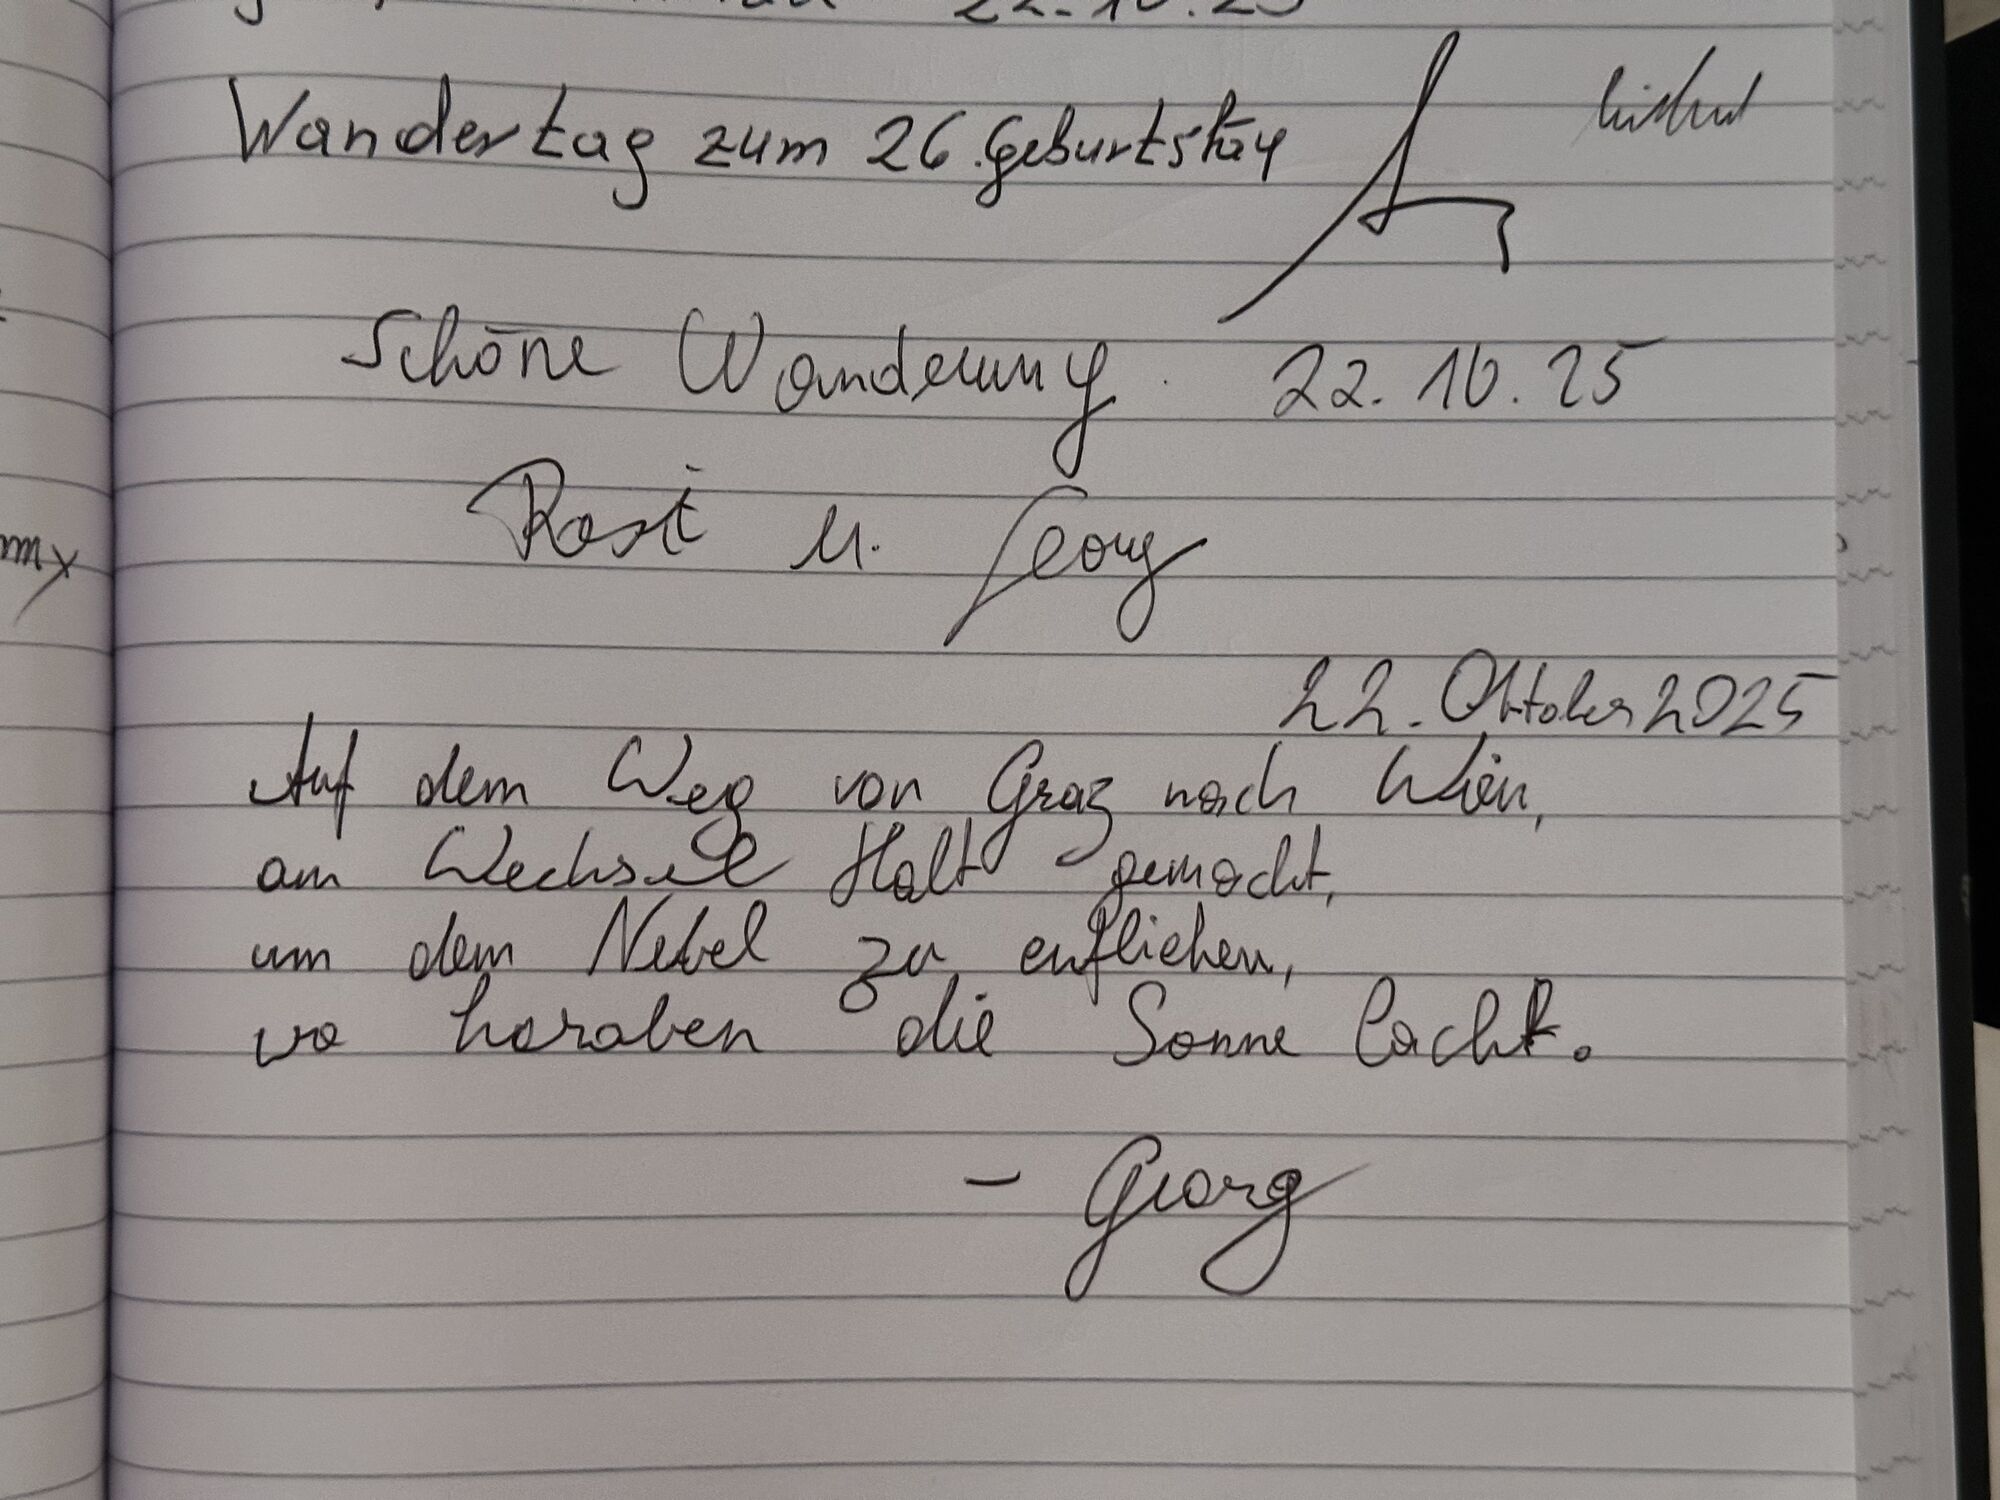 22.10.25
Wandertag zum 26. Geburtstag
Schöne Wanderung 22.10.25
Rosi u. Georg
22. Oktober 2025
Auf dem Weg von Graz nach Wien,
am Wechsel Halt gemacht,
um dem Nebel zu entfliehen,
wo heroben die Sonne lacht.
- Georg